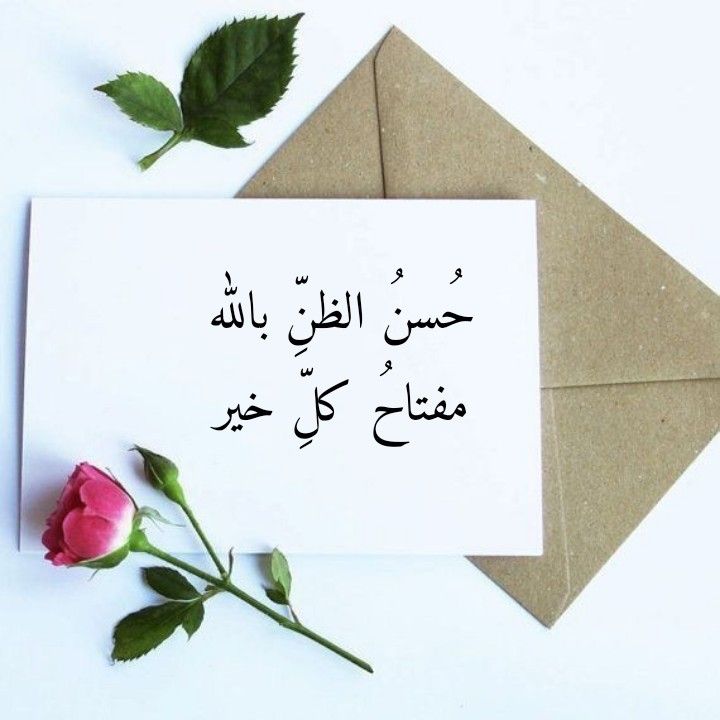 حُسنُ الظنِّ بالله
مفتاحُ كلِّ خير